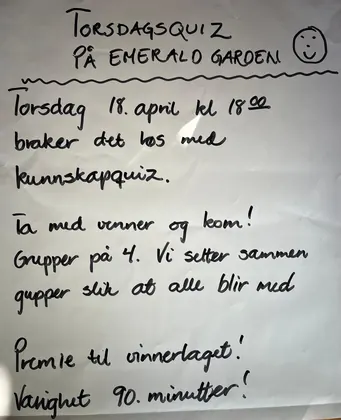 TORSDAGSQUIZ
PÅ EMERALD GARDEN
Torsdag 18. april kl 18 00
braker det løs med
kunnskapquiz.
Ta med venner og kom!
Grupper på 4. Vi setter sammen
gupper slik at alle blir med
Premie til vinnerlaget!
Varighet 90. minutter!